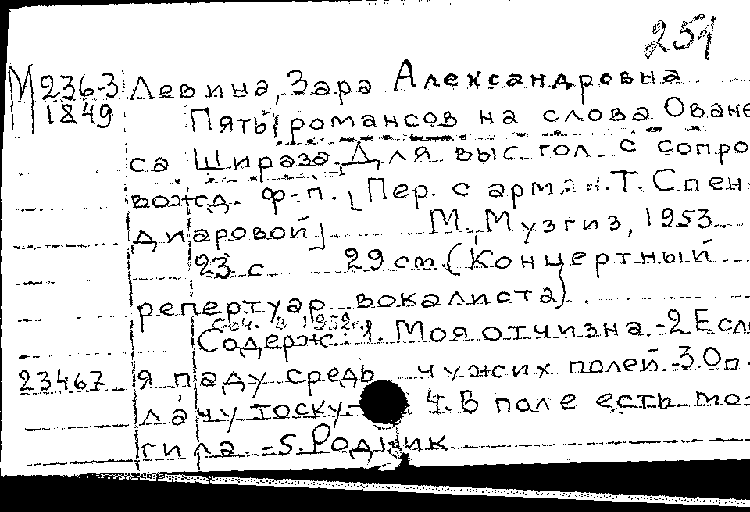 251
М 236-3 Левина, Зара Александровна
1849 Пять романсов на слова Ована
са Шираза. Для выс. гол. с сопро
вожд. ф-п. [Пер. с армян. Т. Спен
диаровой] М., Музгиз, 1953
23 с. 29 см (Концертный
репертуар вокалиста)
Соч. в 1952 г.
Содерж.: 1. Моя отчизна.-2. Есл
23467 я паду средь чужих полей.-3. Оп
лачу тоску.- 4. В поле есть мо
гила.-5. Родник